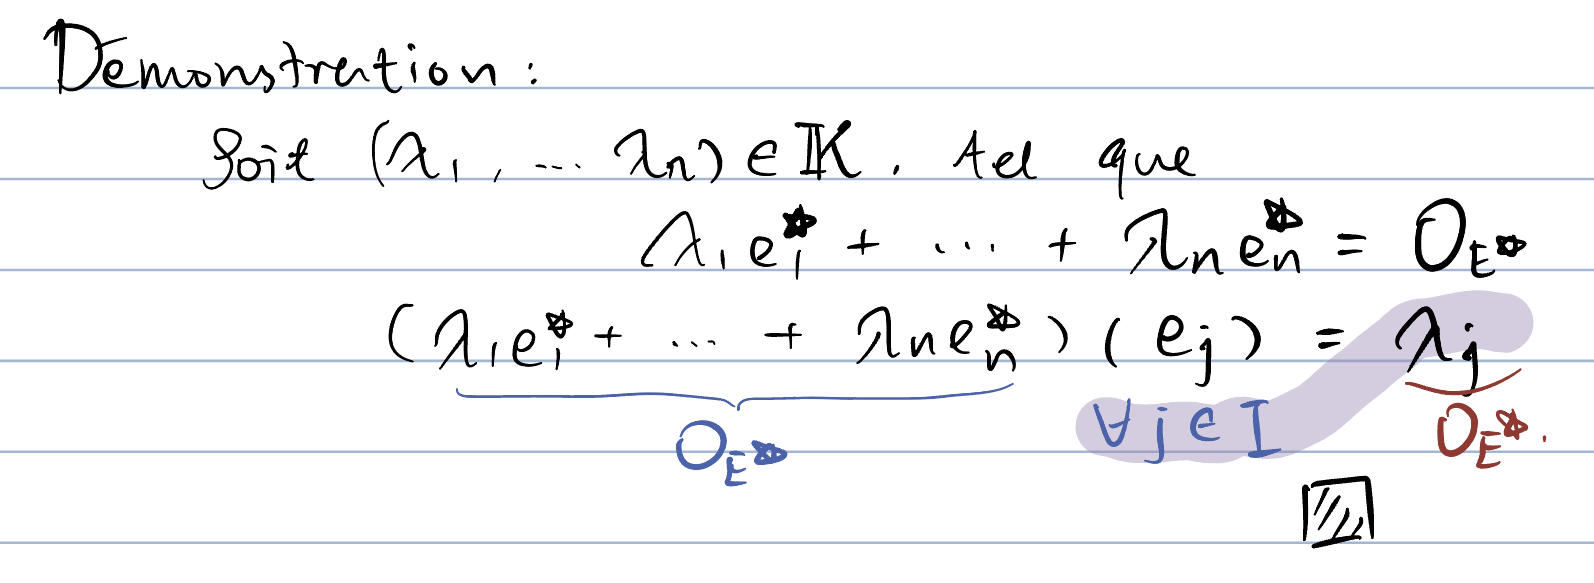 Demonstration :
Soit (λ₁, ... λₙ) ∈ 𝕂. tel que
λ₁e₁* + ... + λₙeₙ* = 0_E*
(λ₁e₁* + ... + λₙeₙ*)(eⱼ) = λⱼ
0_E* ∀j∈I 0_E*.